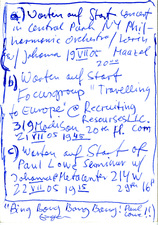 a) Warten auf Start Concert
in Central Park NY Phil-
harmonic Orchestra / Lorin
w/ Johanna 19 VII 05 Maazel
20 00
b) Warten auf Start
Focusgroup "Travelling
to Europe" @ Recruiting
Resources LLC.
319 Madison 20th fl. com
21 VII 05 19 45
c) Warten auf Start of
Paul Lowe Seminar w/
Johanna Metacenter 214 W
22 VII 05 19 15 29th 16th
"Bing Bong Bang Bong! Paul
Lowe!